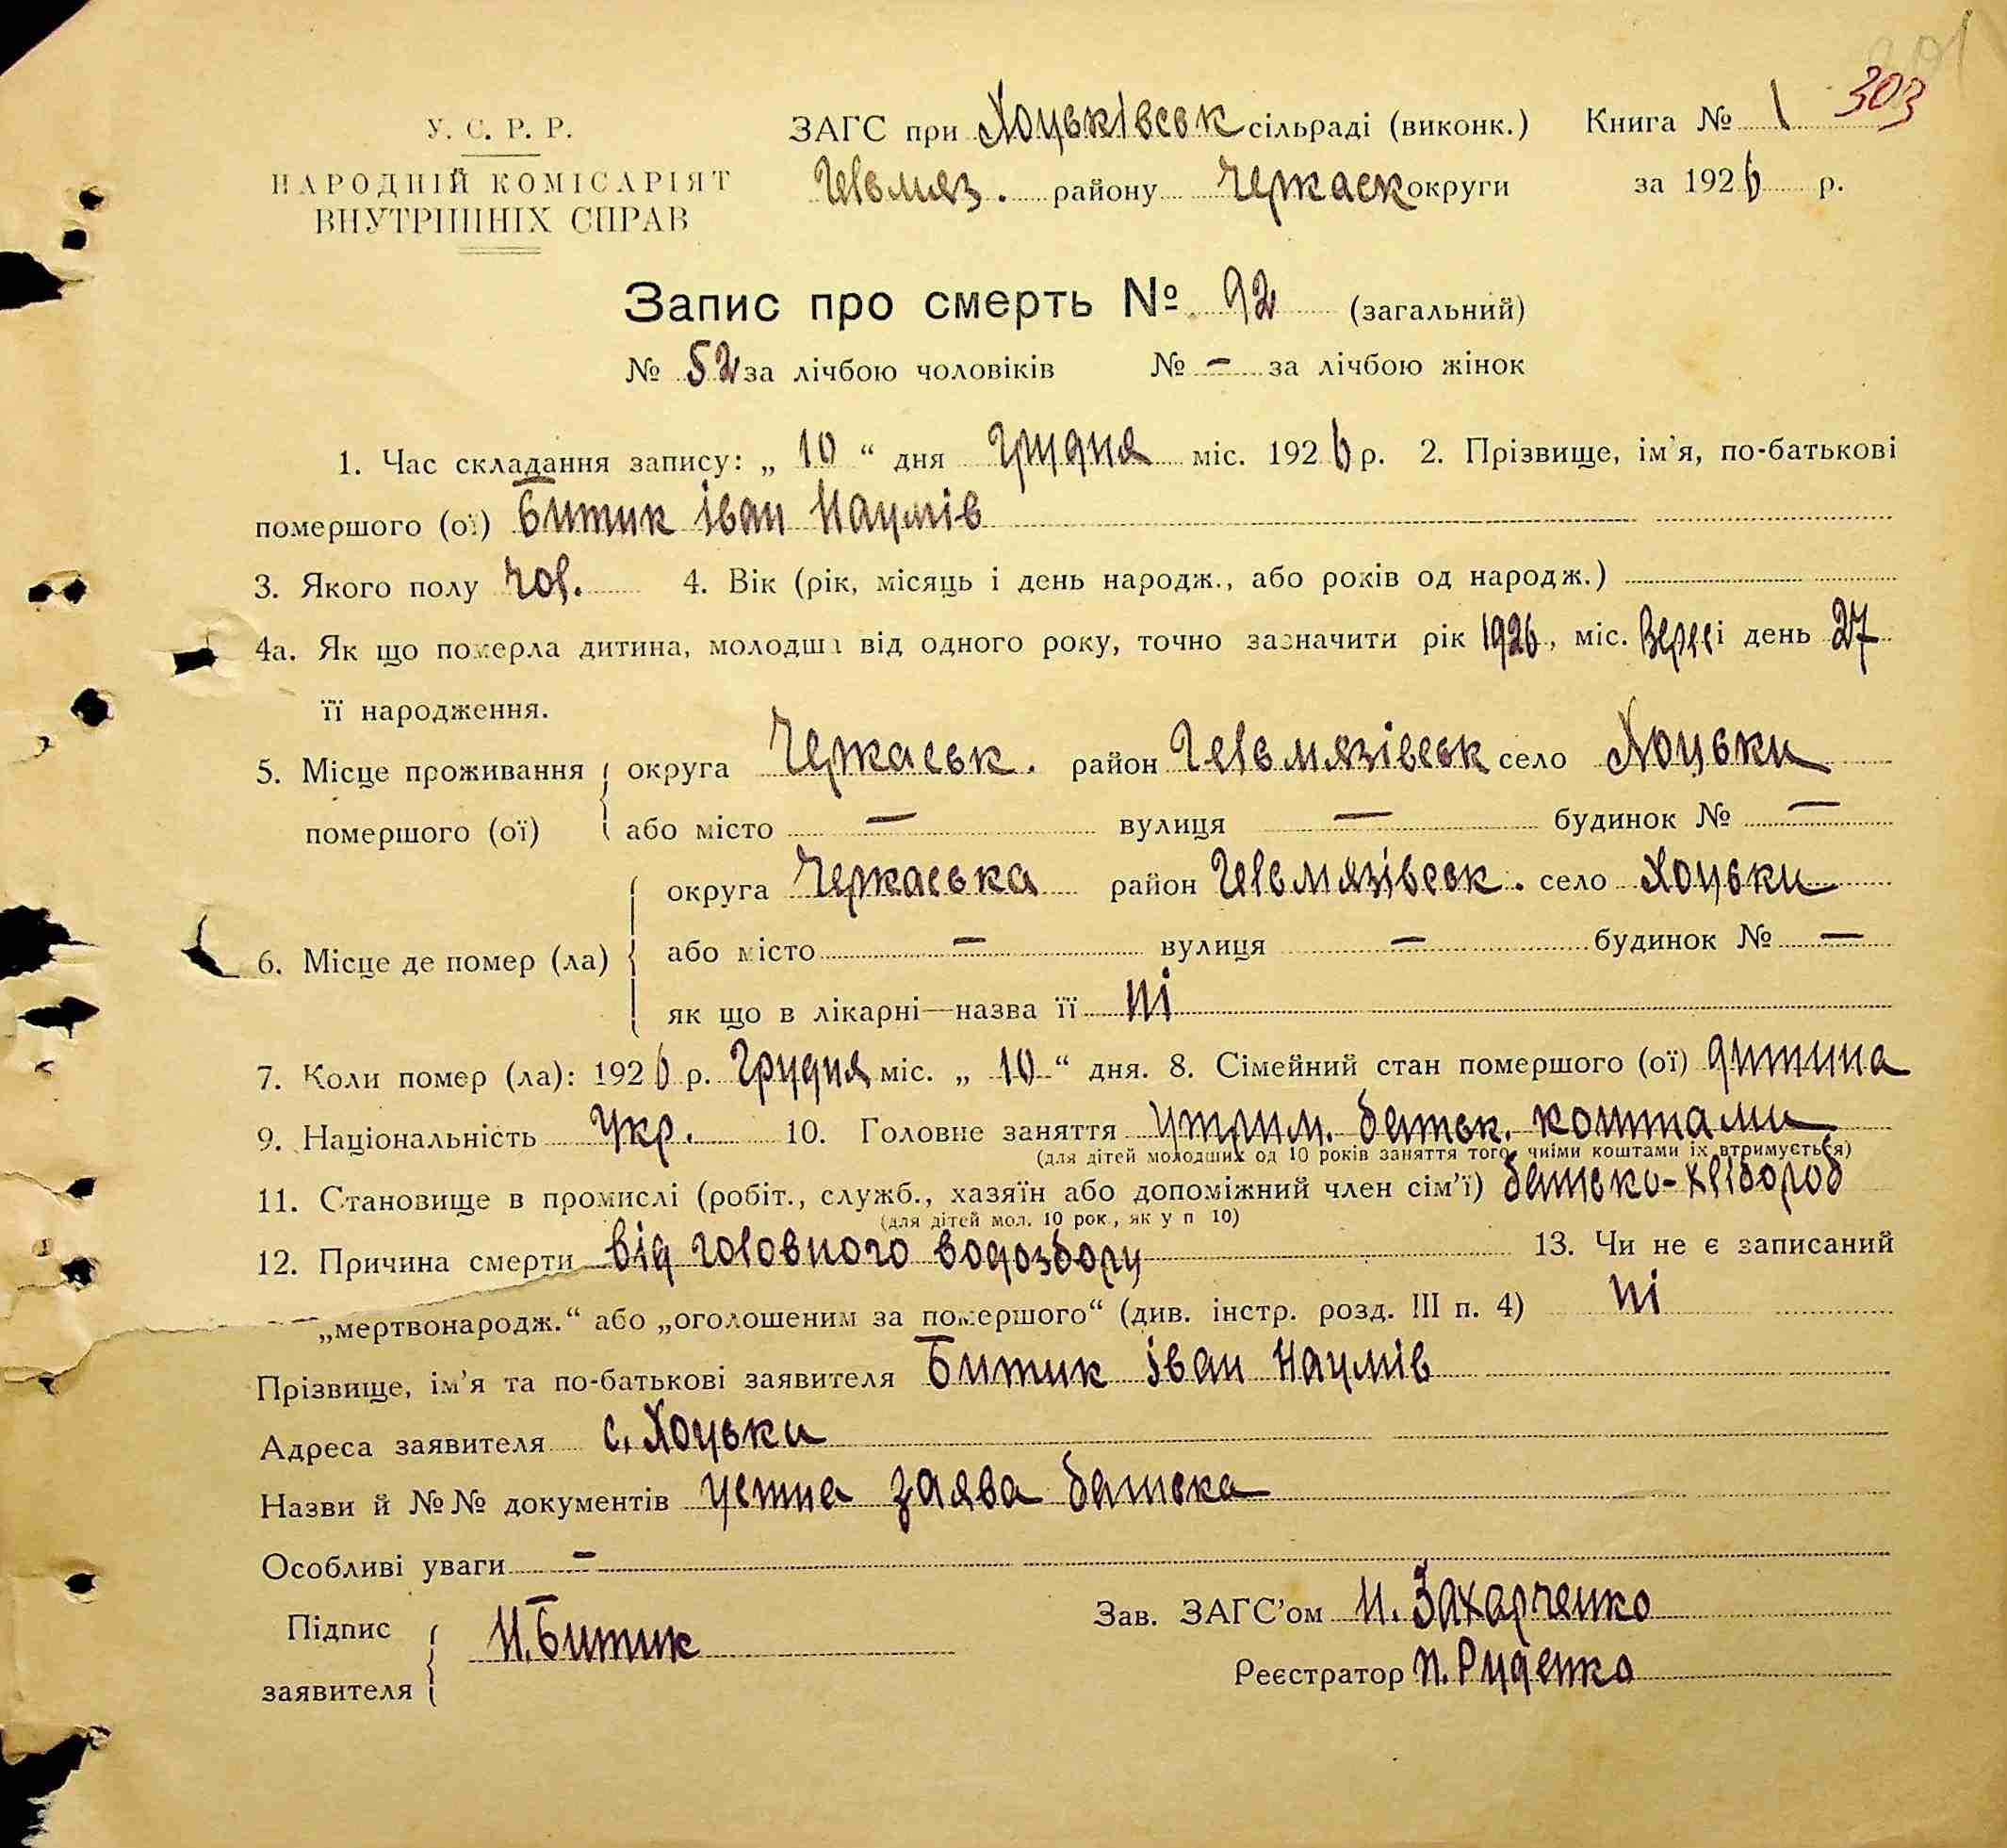 303
У. С. Р. Р.
НАРОДНІЙ КОМІСАРІЯТ
ВНУТРІШНІХ СПРАВ
ЗАГС при Хоцьківськ сільраді (виконк.) Книга № 1
Гельмяз. району Черкаск округи за 1926 р.
Запис про смерть № 92 (загальний)
№ 52 за лічбою чоловіків № – за лічбою жінок
1. Час складання запису: „ 10 “ дня Грудня міс. 1926 р. 2. Прізвище, ім'я, по-батькові
помершого (ої) Битик Іван Наумів
3. Якого полу чол. 4. Вік (рік, місяць і день народж., або років од народж.)
4а. Як що померла дитина, молодша від одного року, точно зазначити рік 1926, міс. Верес і день 27
її народження.
5. Місце проживання округа Черкаськ. район Гельмязівськ село Хоцьки
помершого (ої) або місто — вулиця — будинок № —
округа Черкаська район Гельмязівськ. село Хоцьки
6. Місце де помер (ла) або місто — вулиця — будинок № —
як що в лікарні—назва її ні
7. Коли помер (ла): 1926 р. Грудня міс. „ 10 “ дня. 8. Сімейний стан помершого (ої) дитина
9. Національність Укр. 10. Головне заняття утрим. батьк. коштами
(для дітей молодших од 10 років заняття того, чиїми коштами їх втримується)
11. Становище в промислі (робіт., служб., хазяїн або допоміжний член сім'ї) батько-хлібороб
(для дітей мол. 10 рок., як у п 10)
12. Причина смерти від головного водозбору 13. Чи не є записаний
„мертвонародж.“ або „оголошеним за помершого“ (див. інстр. розд. III п. 4) ні
Прізвище, ім'я та по-батькові заявителя Битик Іван Наумів
Адреса заявителя с. Хоцьки
Назви й №№ документів устна заява батька
Особливі уваги –
Підпис заявителя И. Битик
Зав. ЗАГС'ом И. Захарченко
Реєстратор П. Руденко